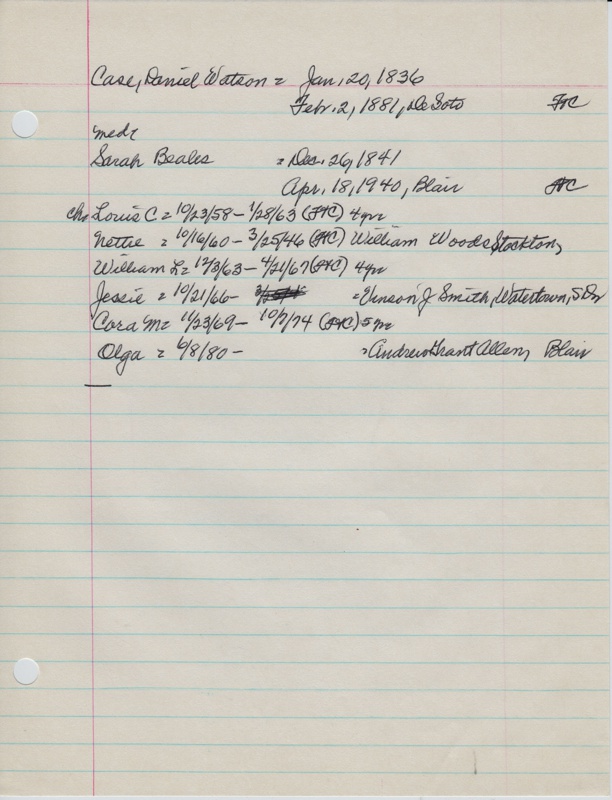 Case, Daniel Watson = Jan, 20, 1836
Febr. 2, 1881, De Soto FtC
med:
Sarah Beales = Dec. 26, 1841
Apr, 18, 1940, Blair FtC
chn Louis C = 10/23/58 - 1/28/63 (FtC) 4 yr
Nettie = 10/16/60 - 3/25/46 (FtC) William Woods Stockton,
William L = 12/3/63 - 4/21/67 (FtC) 4 yr
Jessie = 10/21/66 - = Vinson J Smith, Watertown, S D
Cora M = 11/23/69 - 10/7/74 (FtC) 5 m
Olga = 6/8/80 - = Andrew Grant Allen, Blair